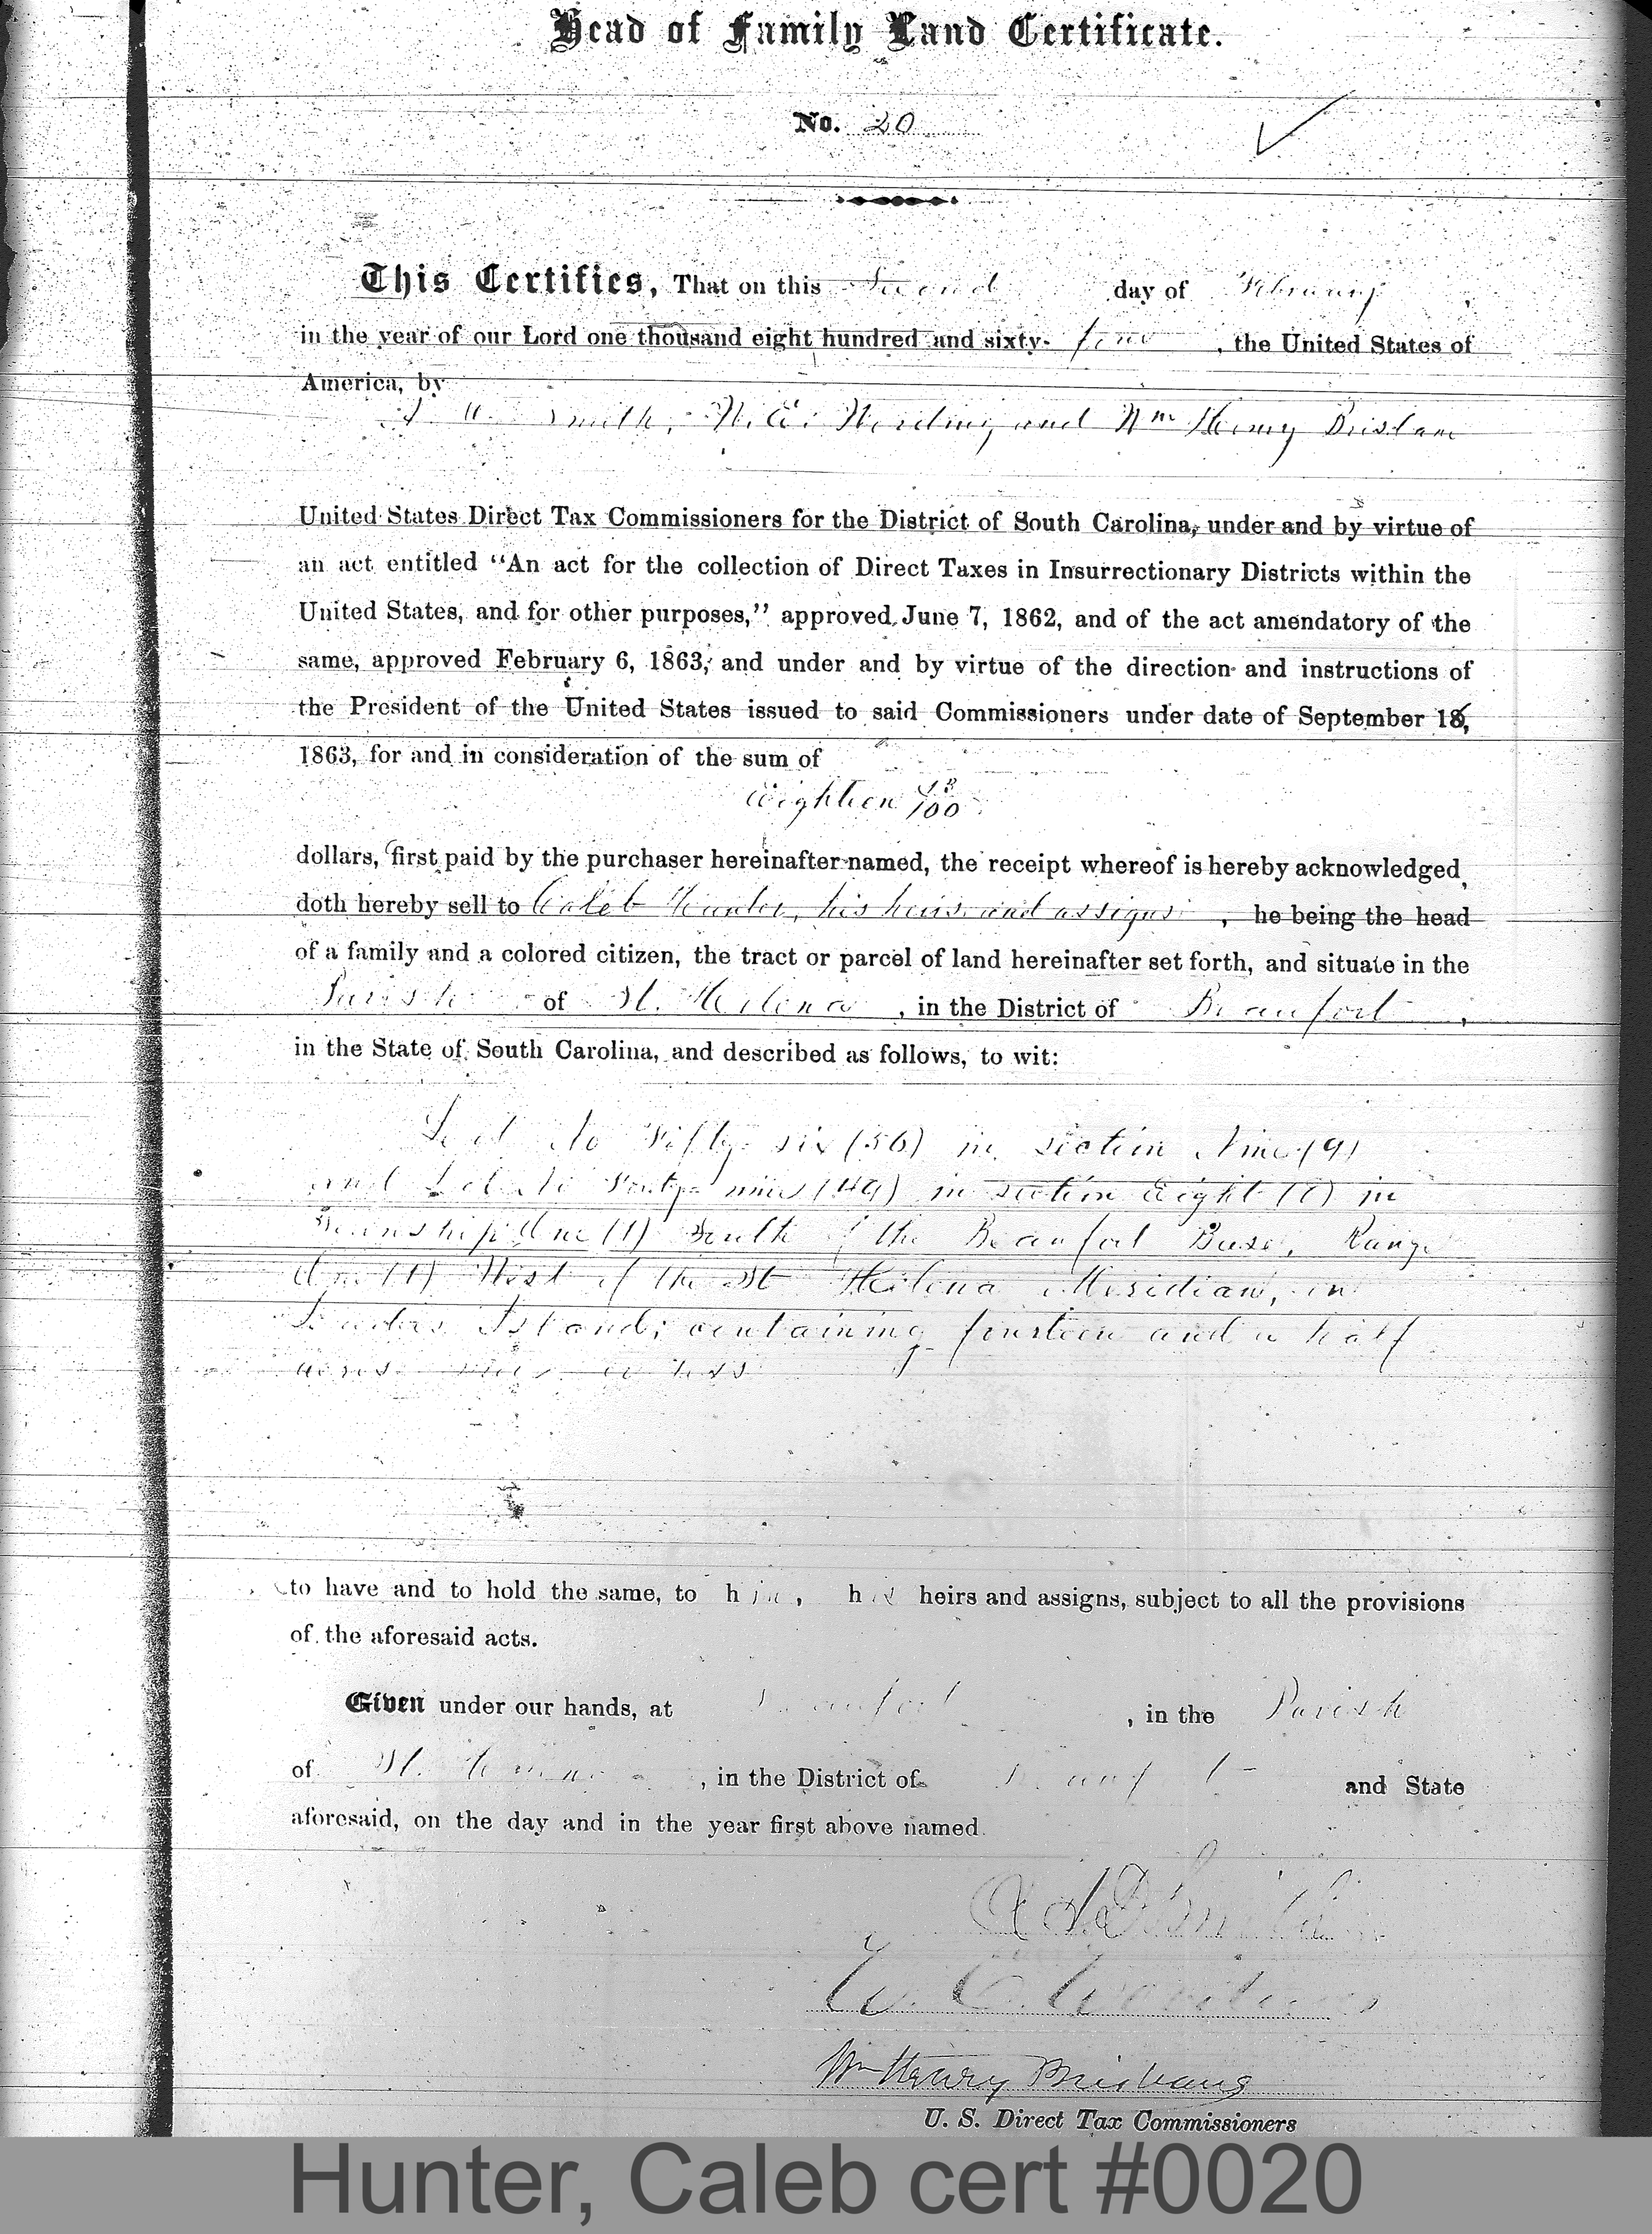 Head of Family Land Certificate.
No. 20
This Certifies, That on this Second day of February,
in the year of our Lord one thousand eight hundred and sixty-four, the United States of
America, by
Smith, W. E. Wording and Wm Henry Brisbane
United States Direct Tax Commissioners for the District of South Carolina, under and by virtue of
an act entitled "An act for the collection of Direct Taxes in Insurrectionary Districts within the
United States, and for other purposes," approved June 7, 1862, and of the act amendatory of the
same, approved February 6, 1863, and under and by virtue of the direction and instructions of
the President of the United States issued to said Commissioners under date of September 16,
1863, for and in consideration of the sum of
Eighteen /100
dollars, first paid by the purchaser hereinafter named, the receipt whereof is hereby acknowledged,
doth hereby sell to Caleb Hunter, his heirs and assigns, he being the head
of a family and a colored citizen, the tract or parcel of land hereinafter set forth, and situate in the
Parish of St. Helena, in the District of Beaufort,
in the State of South Carolina, and described as follows, to wit:
Lot No Fifty-six (56) in section Nine (9)
and Lot No Forty-nine (49) in section Eight (8) in
Township One (1) South of the Beaufort Base, Range
One (1) West of the St Helena Meridian, on
Ladies Island; containing fourteen and a half
acres more or less
to have and to hold the same, to him, his heirs and assigns, subject to all the provisions
of the aforesaid acts.
Given under our hands, at Beaufort, in the Parish
of St. Helena, in the District of Beaufort and State
aforesaid, on the day and in the year first above named.
Smith
W. E. Wording
Wm Henry Brisbane
U. S. Direct Tax Commissioners
Hunter, Caleb cert #0020